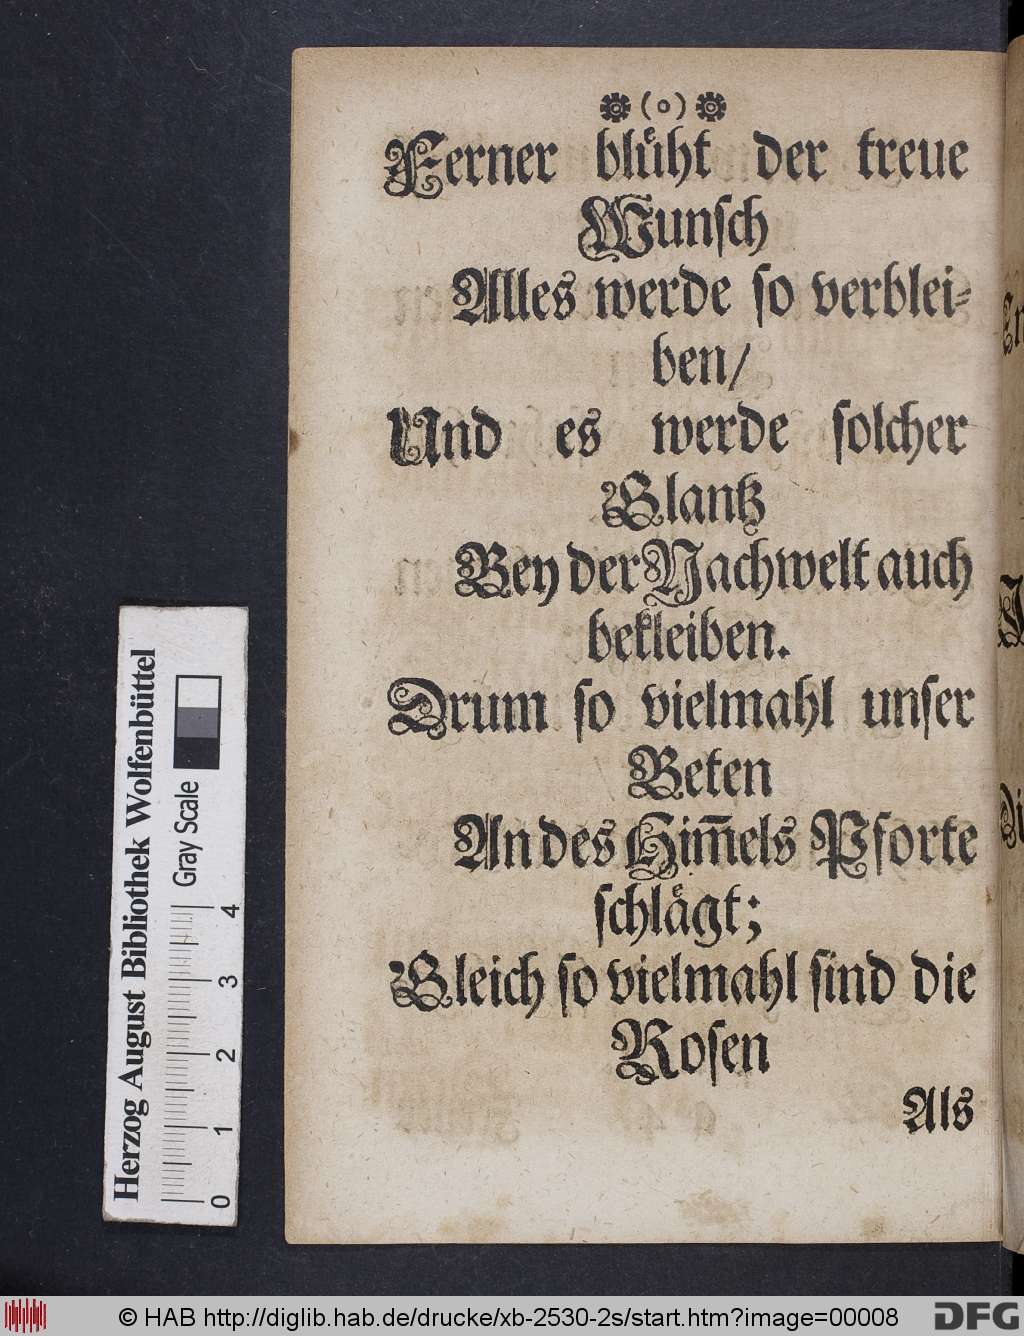 ❁(o)❁
Ferner bluͤht der treue
Wunſch
Alles werde ſo verblei⸗
ben/
Und es werde ſolcher
Glantz
Bey der Nachwelt auch
bekleiben.
Drum ſo vielmahl unſer
Beten
An des Him̃els Pforte
ſchlaͤgt;
Gleich ſo vielmahl ſind die
Roſen
Als
Herzog August Bibliothek Wolfenbüttel
Gray Scale
0 1 2 3 4
© HAB http://diglib.hab.de/drucke/xb-2530-2s/start.htm?image=00008
DFG